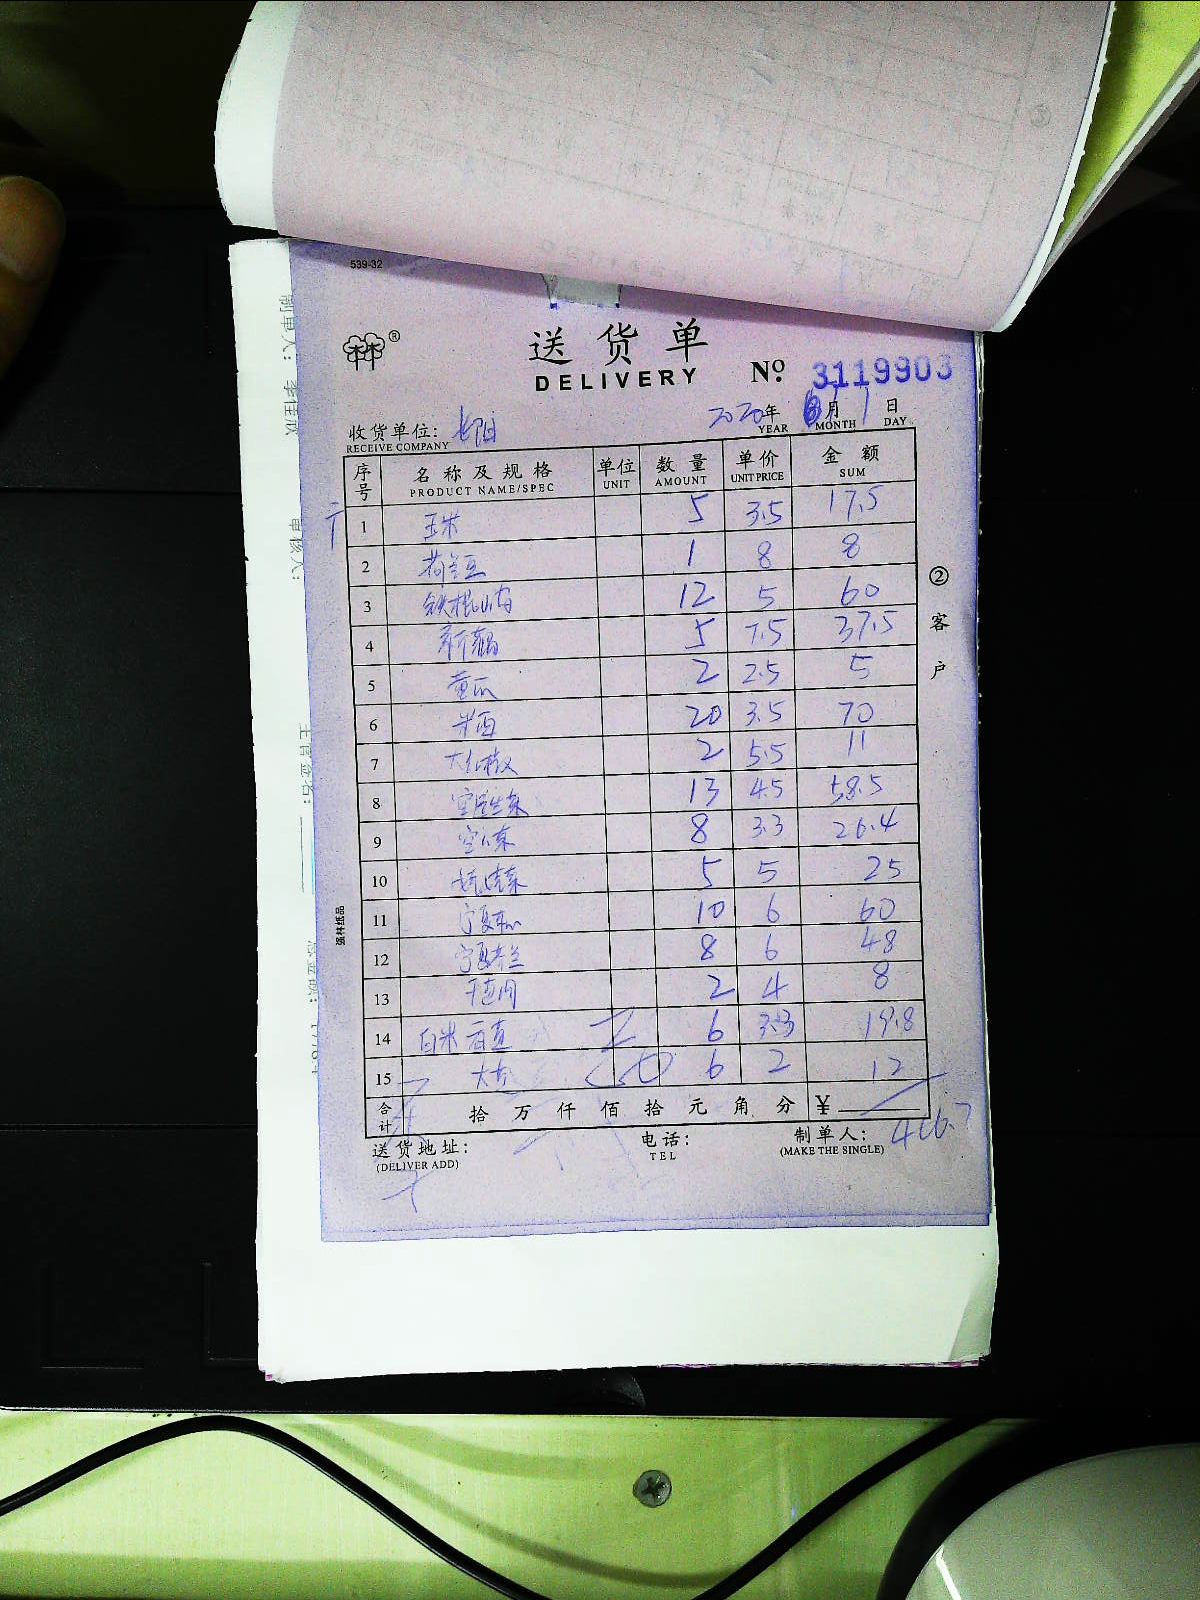 539-32
送货单
DELIVERY
No 3119903
2020年 6月 1日
YEAR MONTH DAY
收货单位:
RECEIVE COMPANY
序号 名称及规格 单位 数量 单价 金额
PRODUCT NAME/SPEC UNIT AMOUNT UNIT PRICE SUM
1 玉米 5 3.5 17.5
2 荷兰豆 1 8 8
3 铁棍山药 12 5 60
4 5 7.5 37.5
5 黄瓜 2 2.5 5
6 20 3.5 70
7 2 5.5 11
8 13 4.5 58.5
9 空心菜 8 3.3 26.4
10 5 5 25
11 宁夏菜心 10 6 60
12 宁夏芥兰 8 6 48
13 2 4 8
14 6 3.3 19.8
15 6 2 12
合计 拾 万 仟 佰 拾 元 角 分 ¥
466.7
送货地址: 电话: 制单人:
(DELIVER ADD) TEL (MAKE THE SINGLE)
②客户
强林纸品
制单人:
审核人:
主管签名: